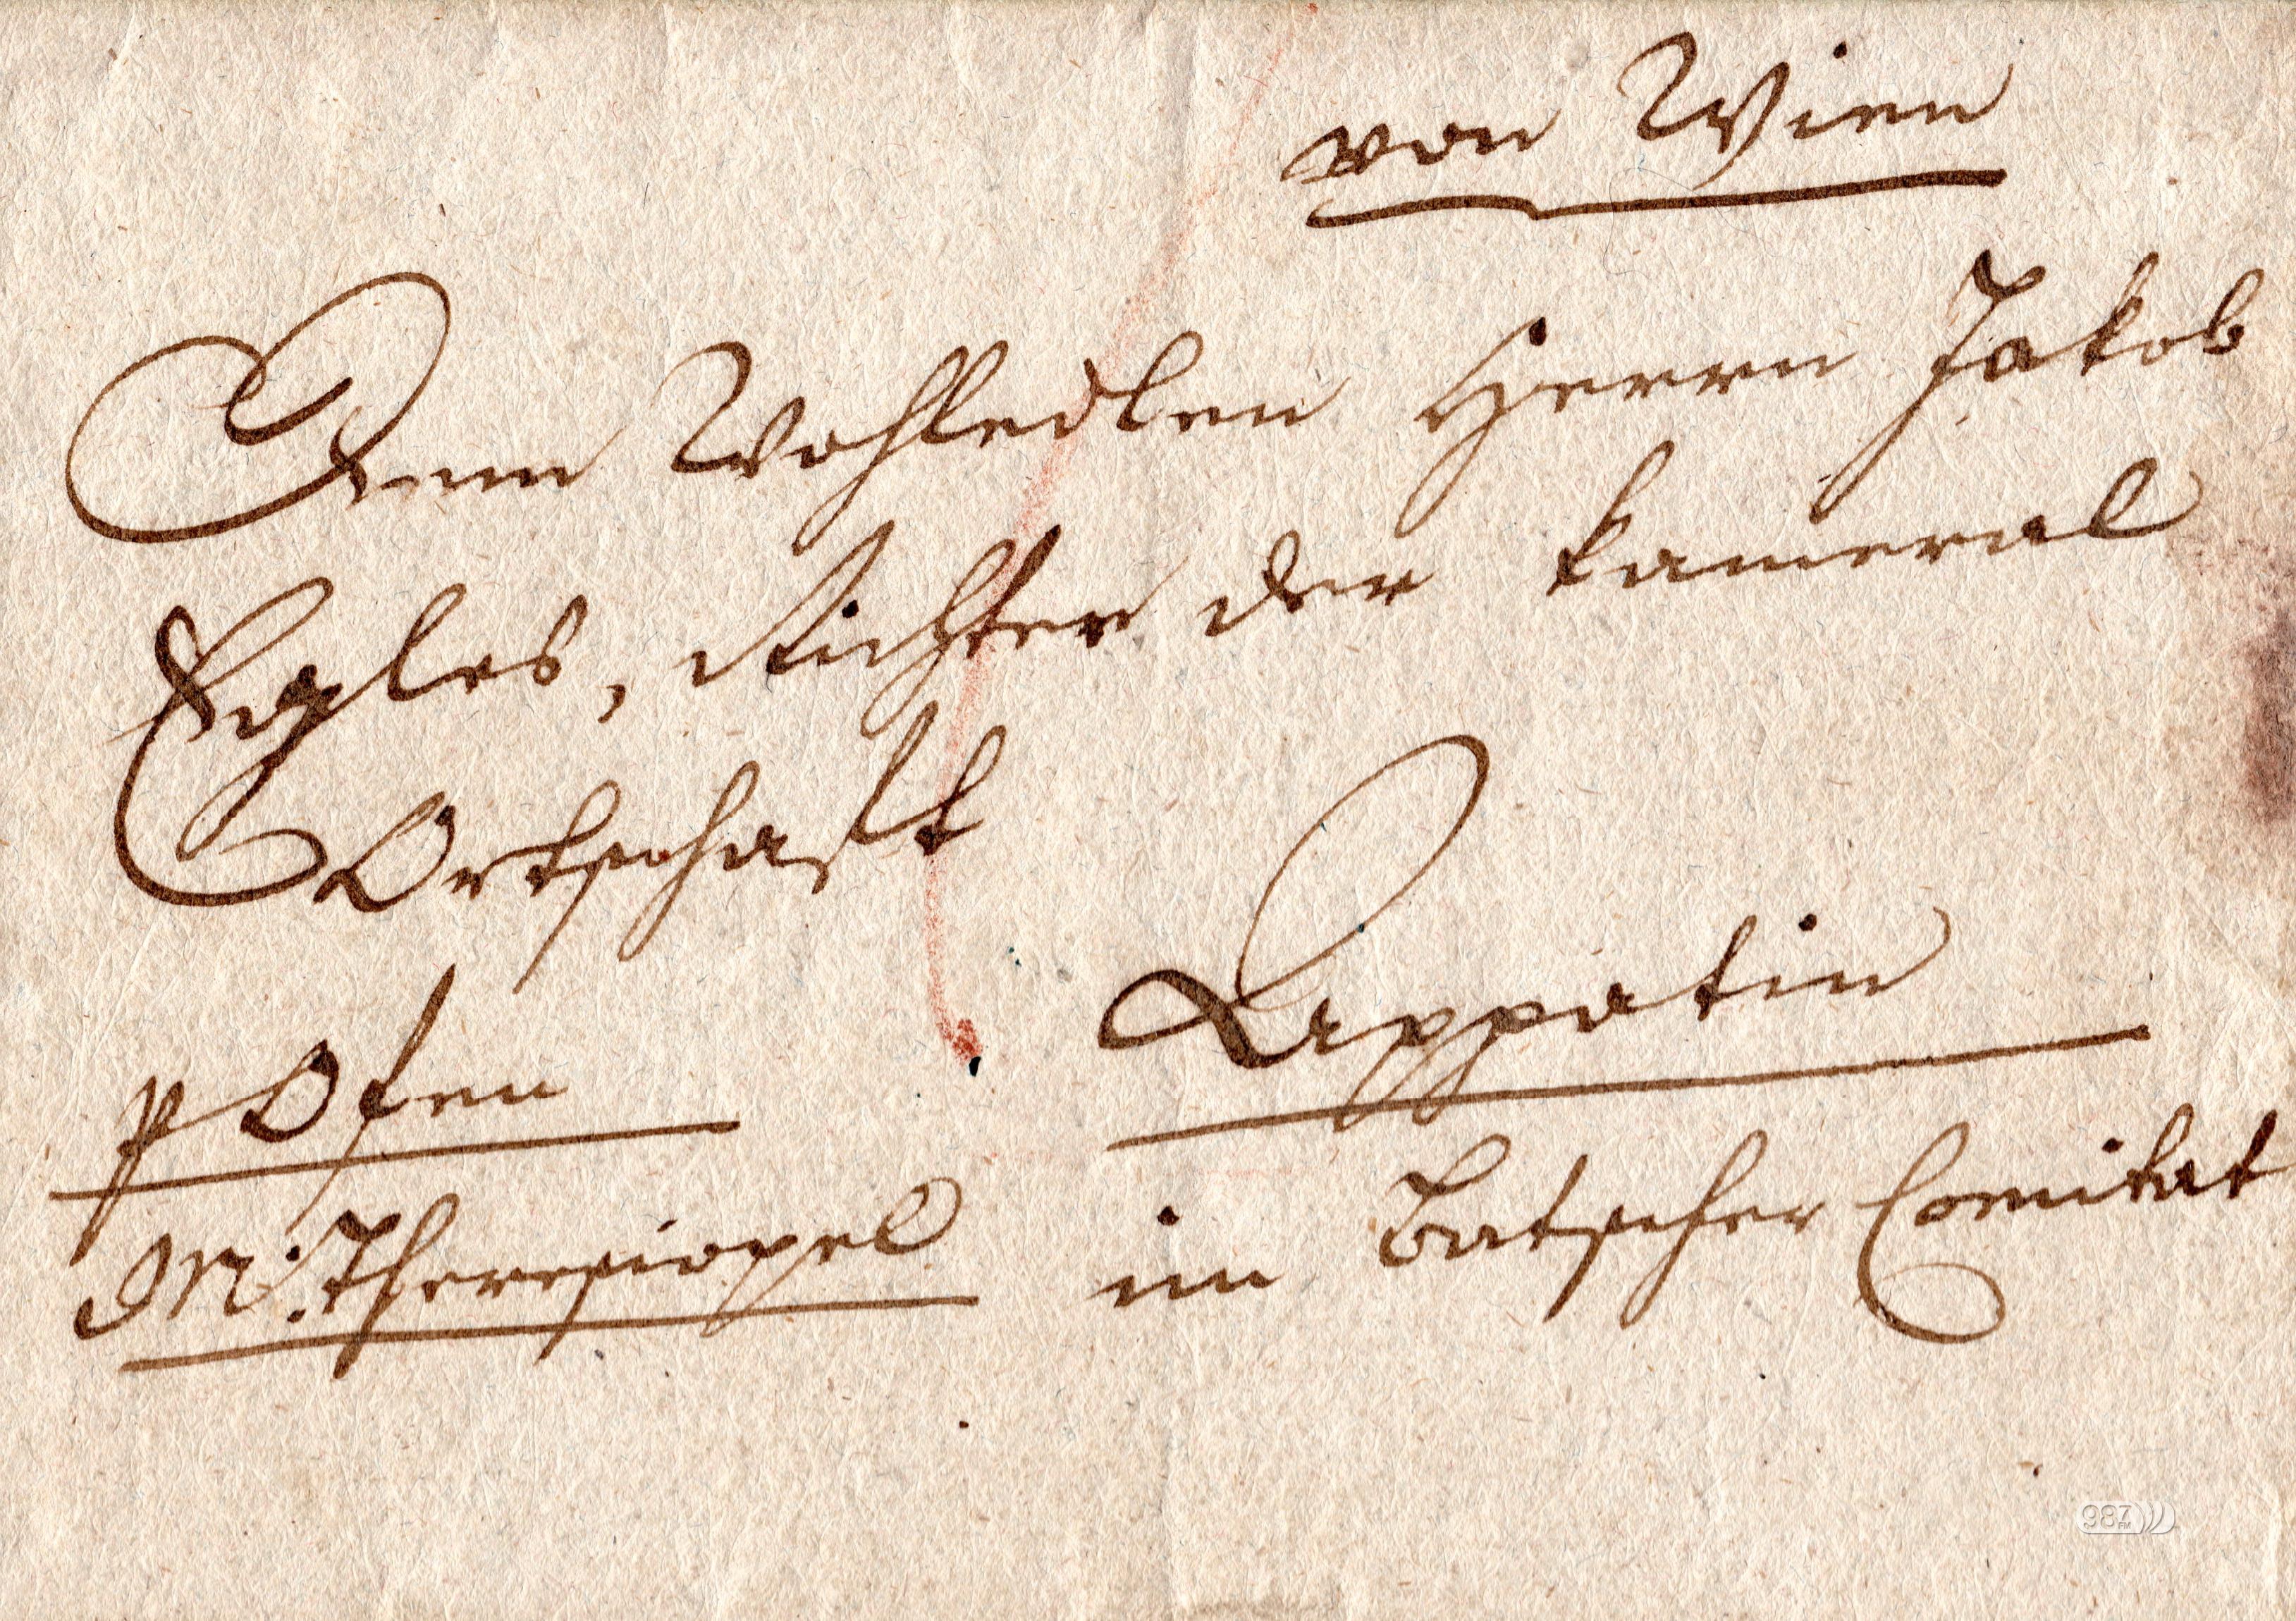 von Wien
Dem Wohledlen Herrn Jakob
Egles, Richter der kameral
Ortschaft
Appatin
p Ofen
M: Theresiopel
im Batscher Comitat
987 FM